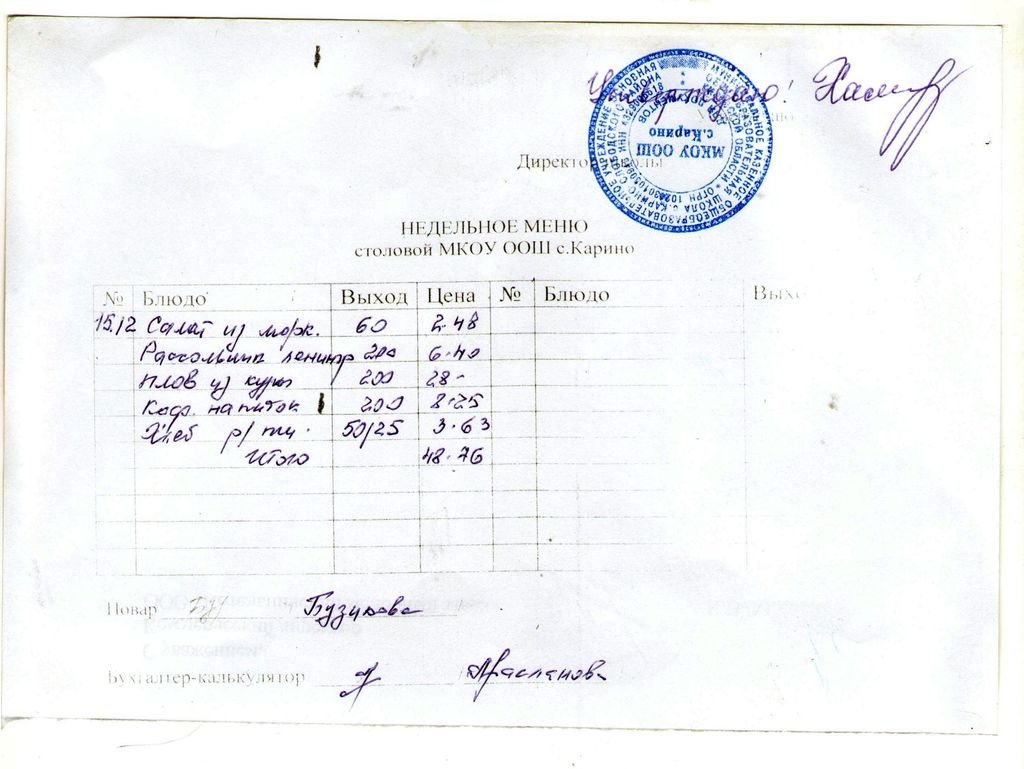 Утверждаю!
Директор школы
МКОУ ООШ
с.Карино
НЕДЕЛЬНОЕ МЕНЮ
столовой МКОУ ООШ с.Карино
№ Блюдо Выход Цена № Блюдо Выхо
15.12 Салат из морк. 60 2-48
Рассольник ленингр 200 6-40
плов из куры 200 28-
Коф. напиток 200 8-25
Хлеб р/пш. 50/25 3-63
Итого 48-76
Повар Бузикова
Бухгалтер-калькулятор Арасланова